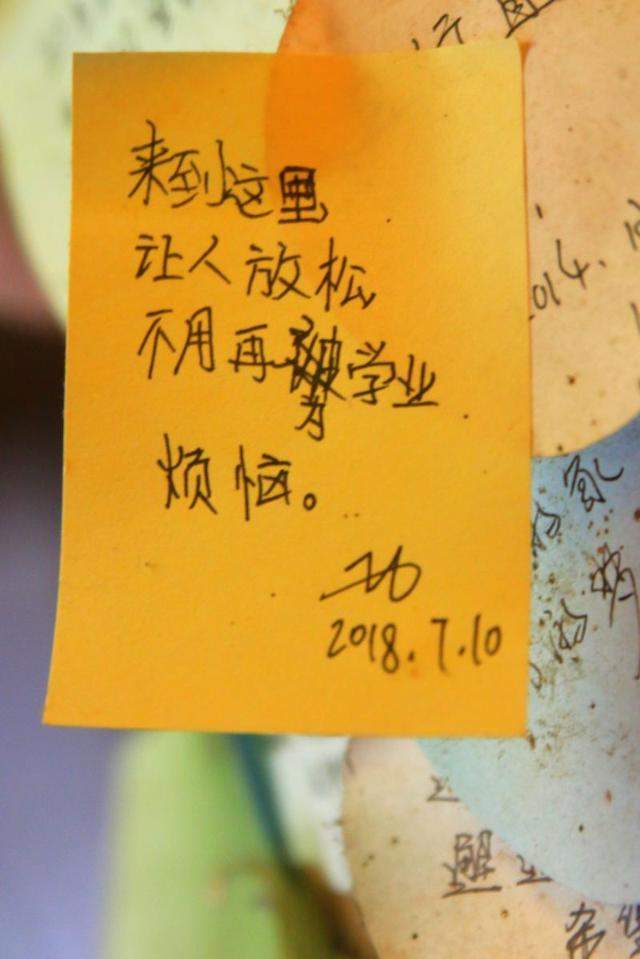 来到这里
让人放松
不用再为学业
烦恼。
2018.7.10
2014.